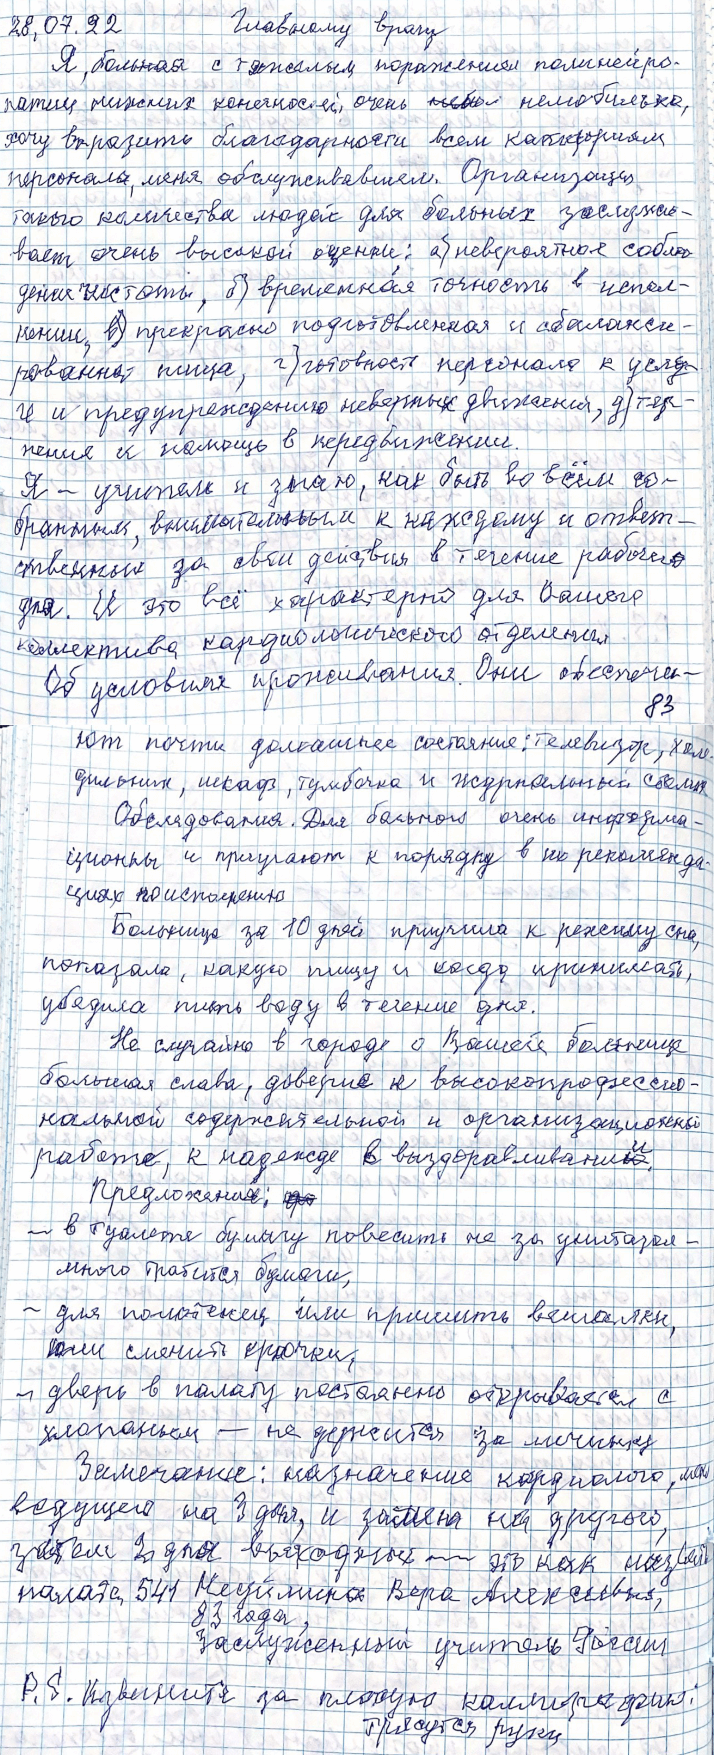 28.07.22 Главному врачу
Я, больная с тяжелым поражением полинейро-
патии нижних конечностей, очень немобильна,
хочу выразить благодарности всем категориям
персонала, меня обслуживавшем. Организация
такого количества людей для больных заслужи-
вает очень высокой оценки: а) невероятное соблю
дение чистоты, б) временная точность в испол-
нении, в) прекрасно подготовленная и сбаланси-
рованная пища, г) готовность персонала к услу
ге и предупреждению неверных движений, д) тер-
пение и помощь в передвижении.
Я – учитель и знаю, как быть во всём со-
бранным, внимательным к каждому и ответ-
ственным за свои действия в течение рабочего
дня. И это всё характерно для Вашего
коллектива кардиологического отделения
Об условиях проживания. Они обеспечи-
83
ют почти домашнее состояние: телевизор, холо-
дильник, шкаф, тумбочка и журнальный столик
Обследования. Для больного очень информа-
ционны и приучают к порядку в их рекоменда-
циях по исполнению
Больница за 10 дней приучила к режиму сна,
показала, какую пищу и когда принимать,
убедила пить воду в течение дня.
Не случайно в городе о Вашей больнице
большая слава, доверие к высокопрофессио-
нальной содержательной и организационной
работе, к надежде в выздоравливании.
Предложения:
– в туалете бумагу повесить не за унитазом –
много тратится бумаги,
– для полотенец или пришить вешалки,
или сменить крючки,
– дверь в палату постоянно открывается с
хлопаньем – не держится за личинку
Замечание: назначение кардиолога, меня
ведущего на 3 дня, и замена на другого,
затем 2 дня выходных – это как назвать
палата 541 Вера Алексеевна,
83 года,
Заслуженный учитель России
P.S. Извините за плохую каллиграфию:
трясутся руки